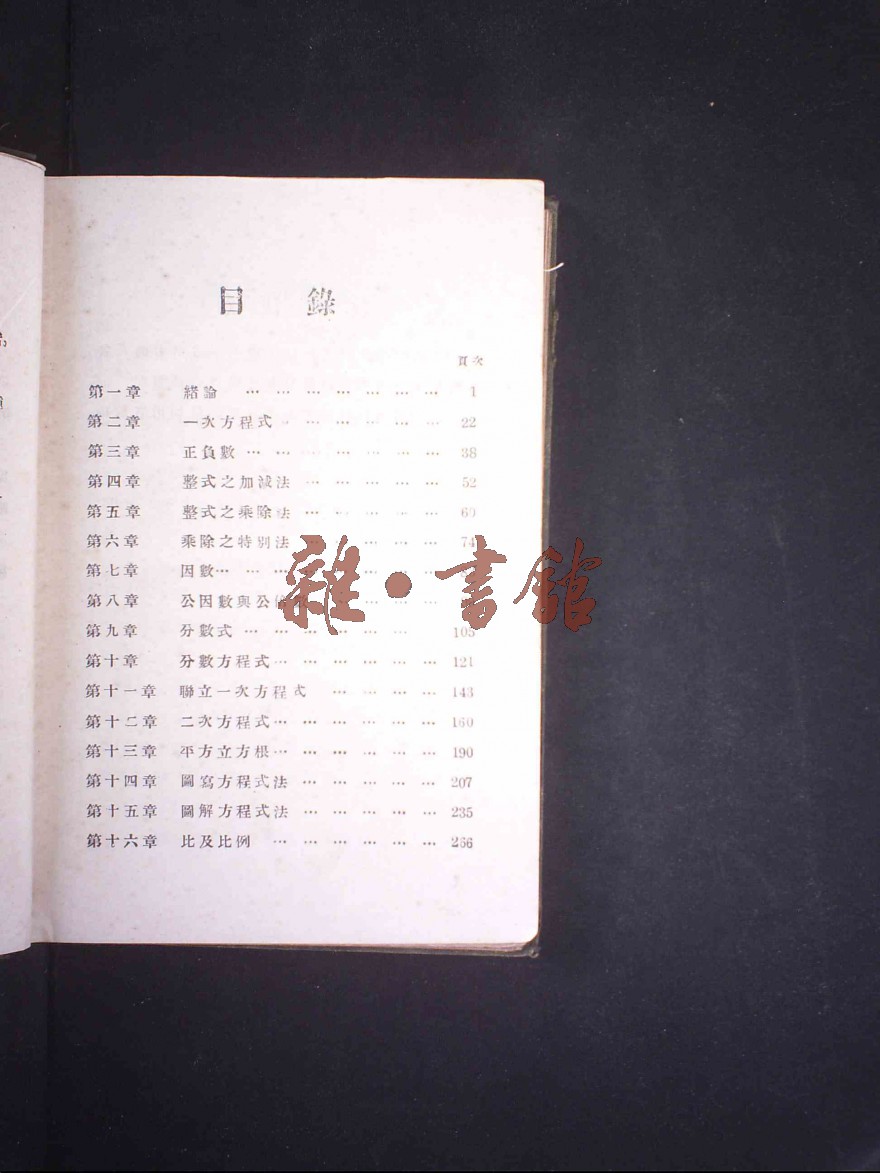 目錄
頁次
第一章 緒論 … … … … … … … 1
第二章 一次方程式 … … … … … … 22
第三章 正負數 … … … … … … … 38
第四章 整式之加減法 … … … … … 52
第五章 整式之乘除法 … … … … …
第六章 乘除之特別法 … … … … … 74
第七章 因數 … … … … … … …
第八章 公因數與公 … … … …
第九章 分數式 … … … … … … 105
第十章 分數方程式 … … … … … … 121
第十一章 聯立一次方程式 … … … … 143
第十二章 二次方程式 … … … … … … 160
第十三章 平方立方根 … … … … … … 190
第十四章 圖寫方程式法 … … … … … 207
第十五章 圖解方程式法 … … … … … 235
第十六章 比及比例 … … … … … … 266
雜·書館